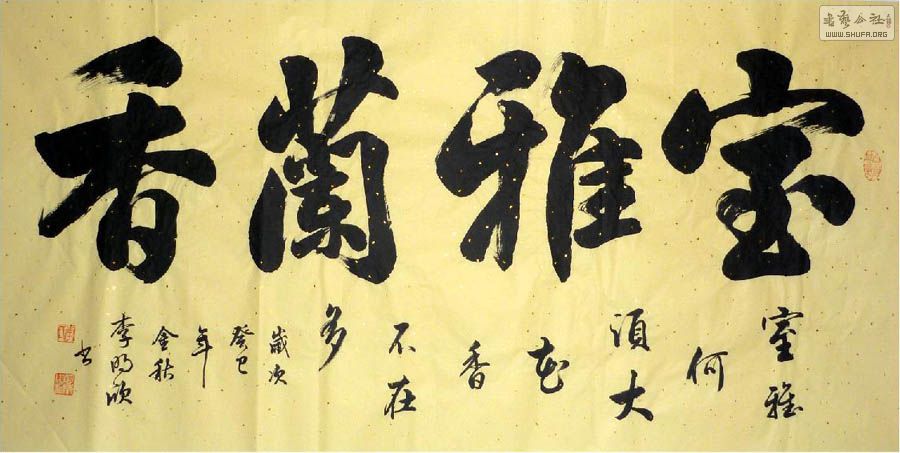 室雅蘭香
室雅
何
須大
花
香
不在
多
歲次
癸巳
年
金秋
李明欣
书
書藝公社
WWW.SHUFA.ORG